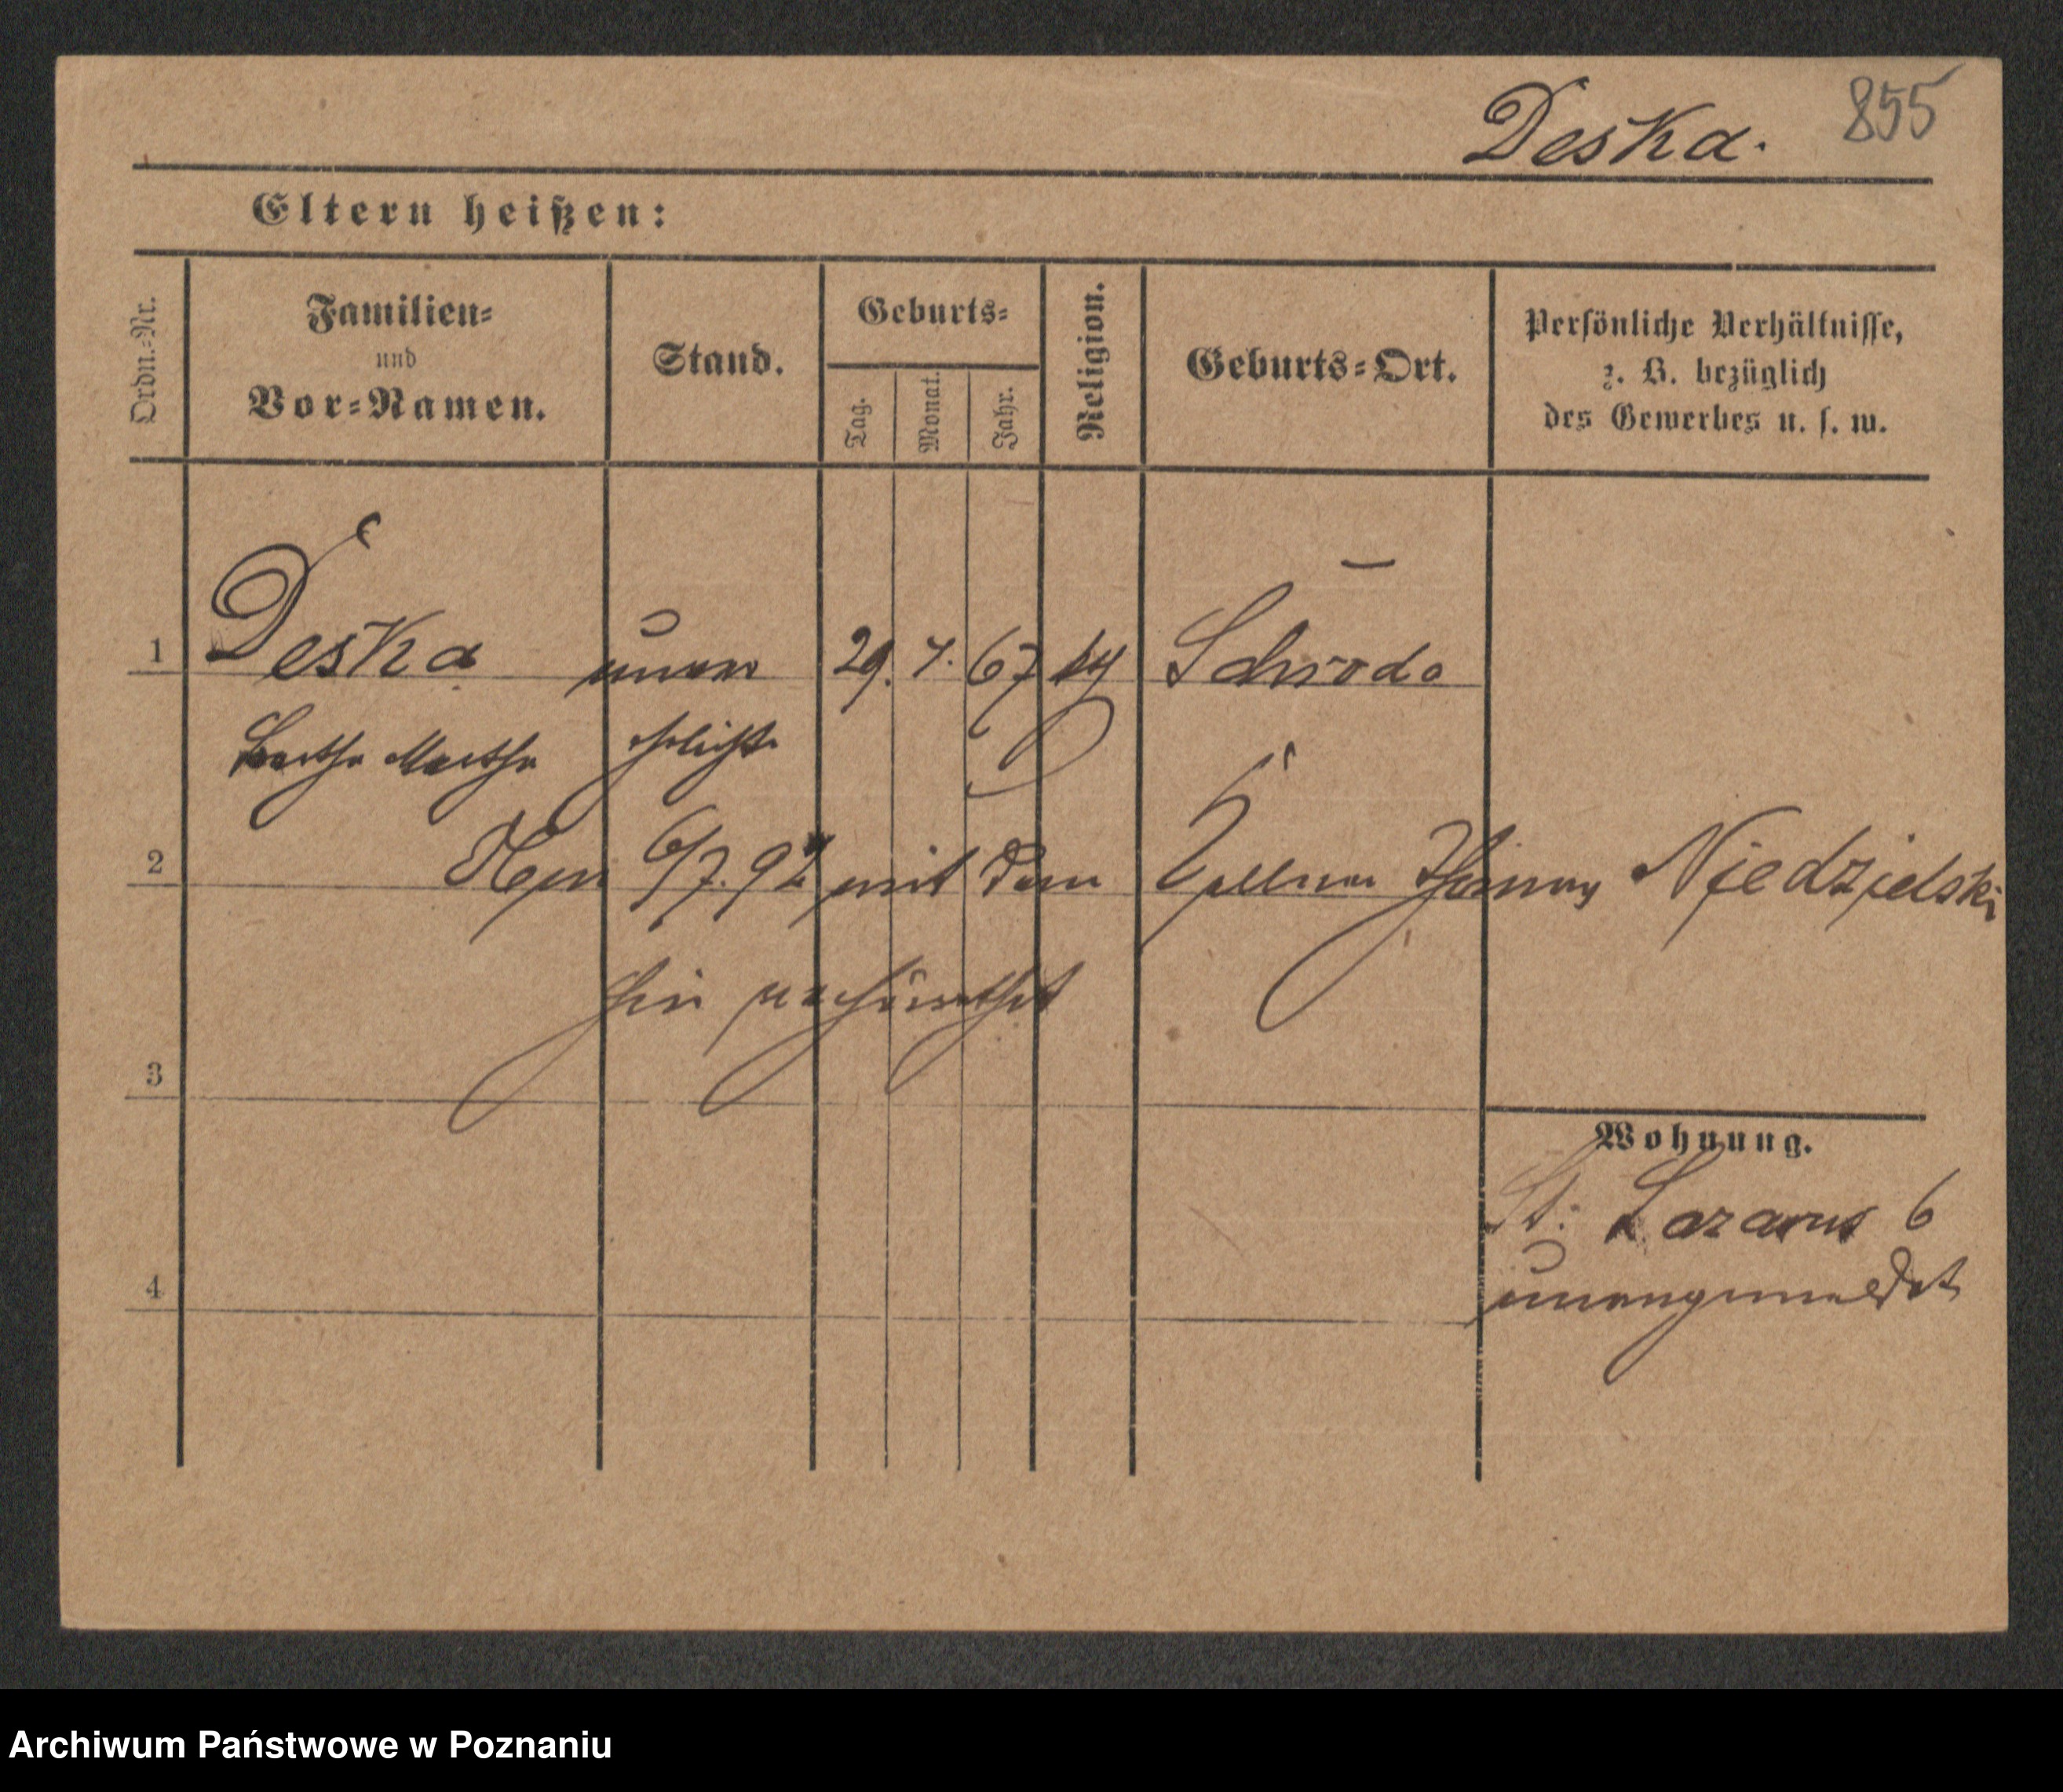 Deska. 855
Eltern heißen:
Ordn.-Nr.
Familien-
und
Vor-Namen.
Stand.
Geburts-
Tag.
Monat.
Jahr.
Religion.
Geburts-Ort.
Persönliche Verhältnisse,
z. B. bezüglich
des Gewerbes u. s. w.
1 Deska unver 29. 7. 67 kth Schroda
Bertha Martha ehelicht
2 6/7. 92 mit dem Kellner Niedzielski
hier verheirathet
3
Wohnung.
St: Lazarus 6
unangemeldet
4
Archiwum Państwowe w Poznaniu